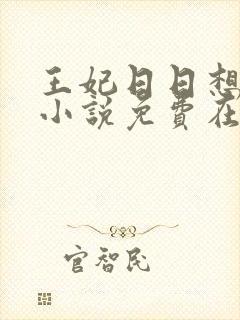 王妃日日想
小说免费在
官智民